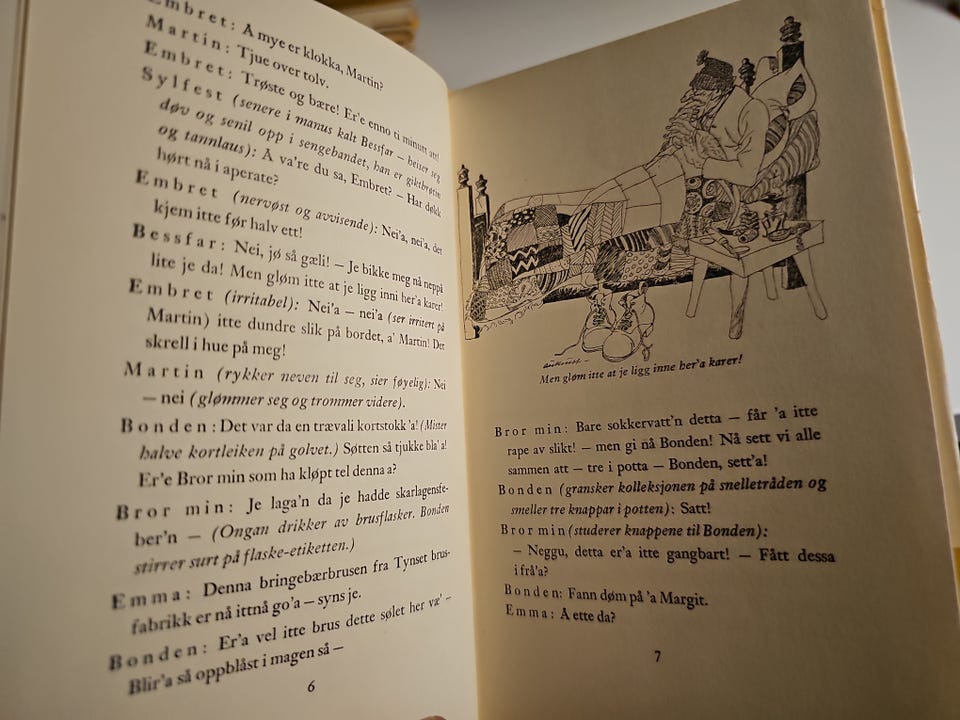 Embret: Å mye er klokka, Martin?
Martin: Tjue over tolv.
Embret: Trøste og bære! Er'e enno ti minutt att!
Sylfest (senere i manus kalt Bessfar – heiser seg
døv og senil opp i sengebandet, han er giktbrøtin
og tannlaus): Å va're du sa, Embret? – Har døkk
hørt nå i aperate?
Embret (nervøst og avvisende): Nei'a, nei'a, det
kjem itte før halv ett!
Bessfar: Nei, jø så gæli! – Je bikke meg nå neppå
lite je da! Men gløm itte at je ligg inni her'a karer!
Embret (irritabel): Nei'a – nei'a (ser irritert på
Martin) itte dundre slik på bordet, a' Martin! Det
skrell i hue på meg!
Martin (rykker neven til seg, sier føyelig): Nei
– nei (glømmer seg og trommer videre).
Bonden: Det var da en trævali kortstokk 'a! (Mister
halve kortleiken på golvet.) Søtten så tjukke bla' a!
Er'e Bror min som ha kløpt tel denna a?
Bror min: Je laga'n da je hadde skarlagensfe-
ber'n – (Ongan drikker av brusflasker. Bonden
stirrer surt på flaske-etiketten.)
Emma: Denna bringebærbrusen fra Tynset brus-
fabrikk er nå ittnå go'a – syns je.
Bonden: Er'a vel itte brus dette sølet her væ' –
Blir'a så oppblåst i magen så –
6
aukrust–
Men gløm itte at je ligg inne her'a karer!
Bror min: Bare sokkervatt'n detta – får 'a itte
rape av slikt! – men gi nå Bonden! Nå sett vi alle
sammen att – tre i potta – Bonden, sett'a!
Bonden (gransker kolleksjonen på snelletråden og
smeller tre knappar i potten): Satt!
Bror min (studerer knappene til Bonden):
– Neggu, detta er'a itte gangbart! – Fått dessa
i frå'a?
Bonden: Fann døm på 'a Margit.
Emma: A ette da?
7